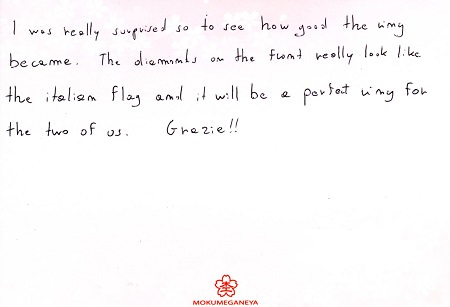 I was really surprised so to see how good the ring
became. The diamonds on the front really look like
the italian flag and it will be a perfect ring for
the two of us. Grazie!!
MOKUMEGANEYA